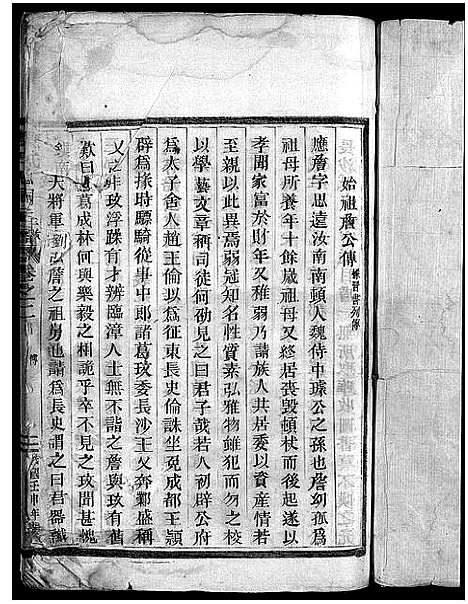 始祖詹公傳 錄晉書列傳
應詹字思遠汝南南頓人魏侍中璩公之孫也詹幼孤爲
祖母所養年十餘歲祖母又終居喪毀頓杖而後起遂以
孝聞家富於財年又稚弱乃請族人共居委以資產情若
至親以此異焉弱冠知名性質素弘雅物雖犯而勿之校
以學藝文章稱司徒何劭見之曰君子哉若人初辟公府
爲太子舍人趙王倫以爲征東長史倫誅坐免成都王頴
辟爲掾時驃騎從事中郎諸葛玫委長沙王乂奔鄴盛稱
乂之非玫浮躁有才辨臨漳人士無不詣之詹與玫有舊
歎曰諸葛成林何與樂毅之相詭乎卒不見之玫聞甚愧
大將軍劉弘詹之祖舅也請爲長史謂之曰君器識
卷之二
傳
民國壬申年